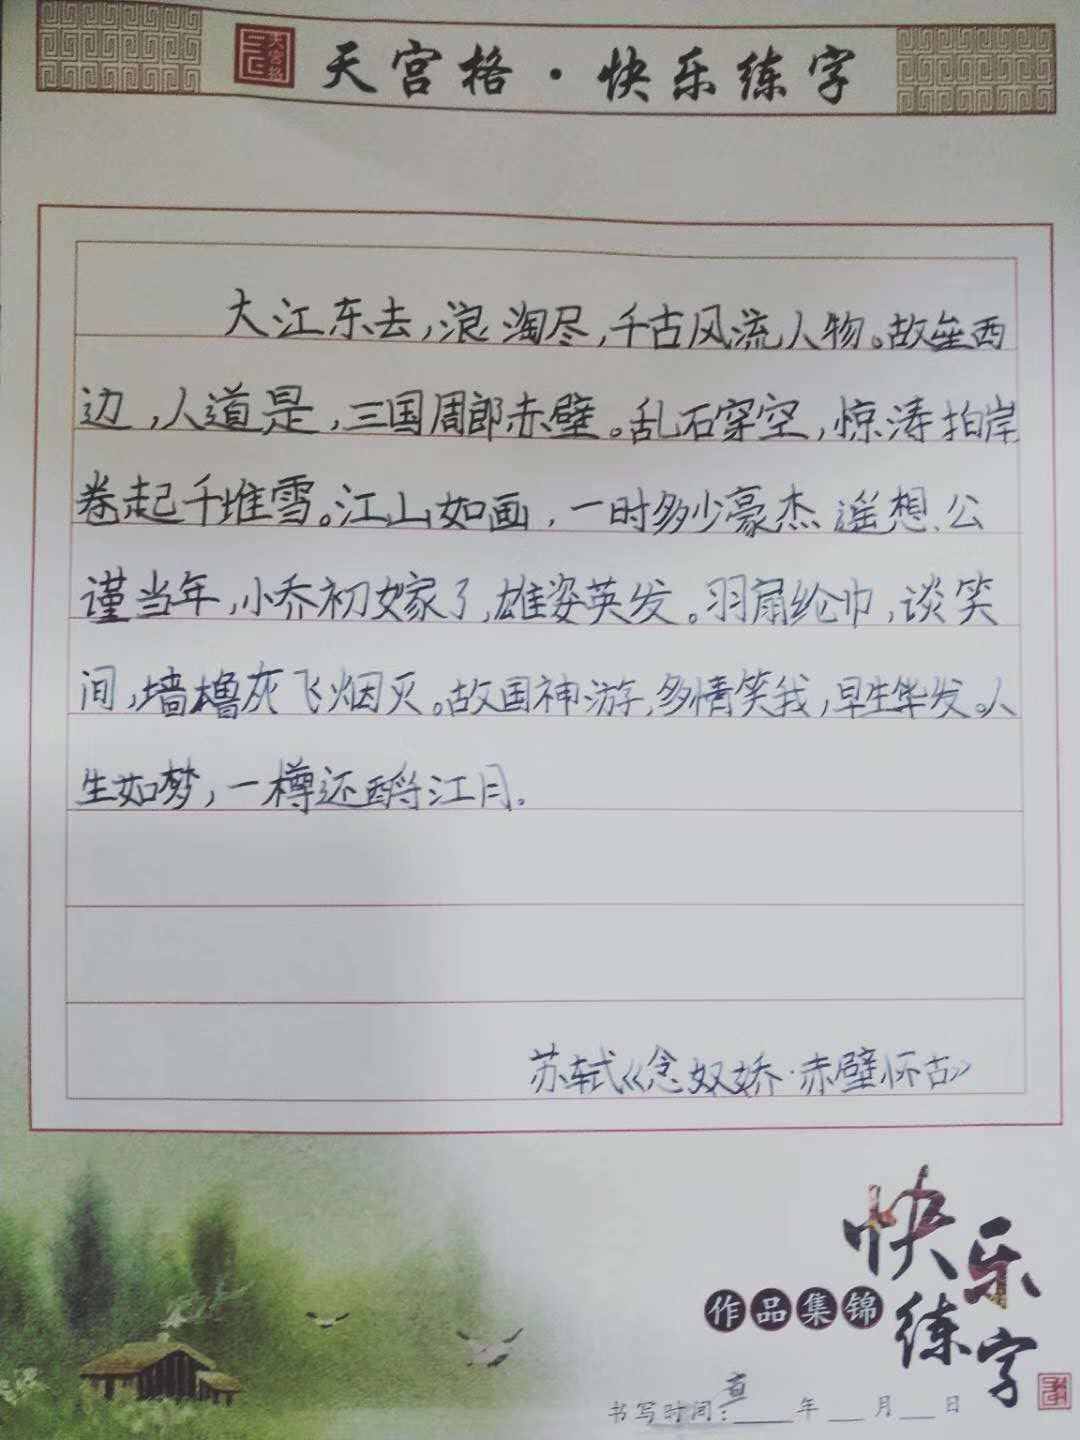 天宫格
天宫格·快乐练字
大江东去,浪淘尽,千古风流人物。故垒西
边,人道是,三国周郎赤壁。乱石穿空,惊涛拍岸
卷起千堆雪。江山如画,一时多少豪杰 遥想、公
谨当年,小乔初嫁了,雄姿英发。羽扇纶巾,谈笑
间,墙橹灰飞烟灭。故国神游,多情笑我,早生华发。人
生如梦,一樽还酹江月。
苏轼《念奴娇·赤壁怀古》
快乐练字
作品集锦
书写时间:____年___月___日